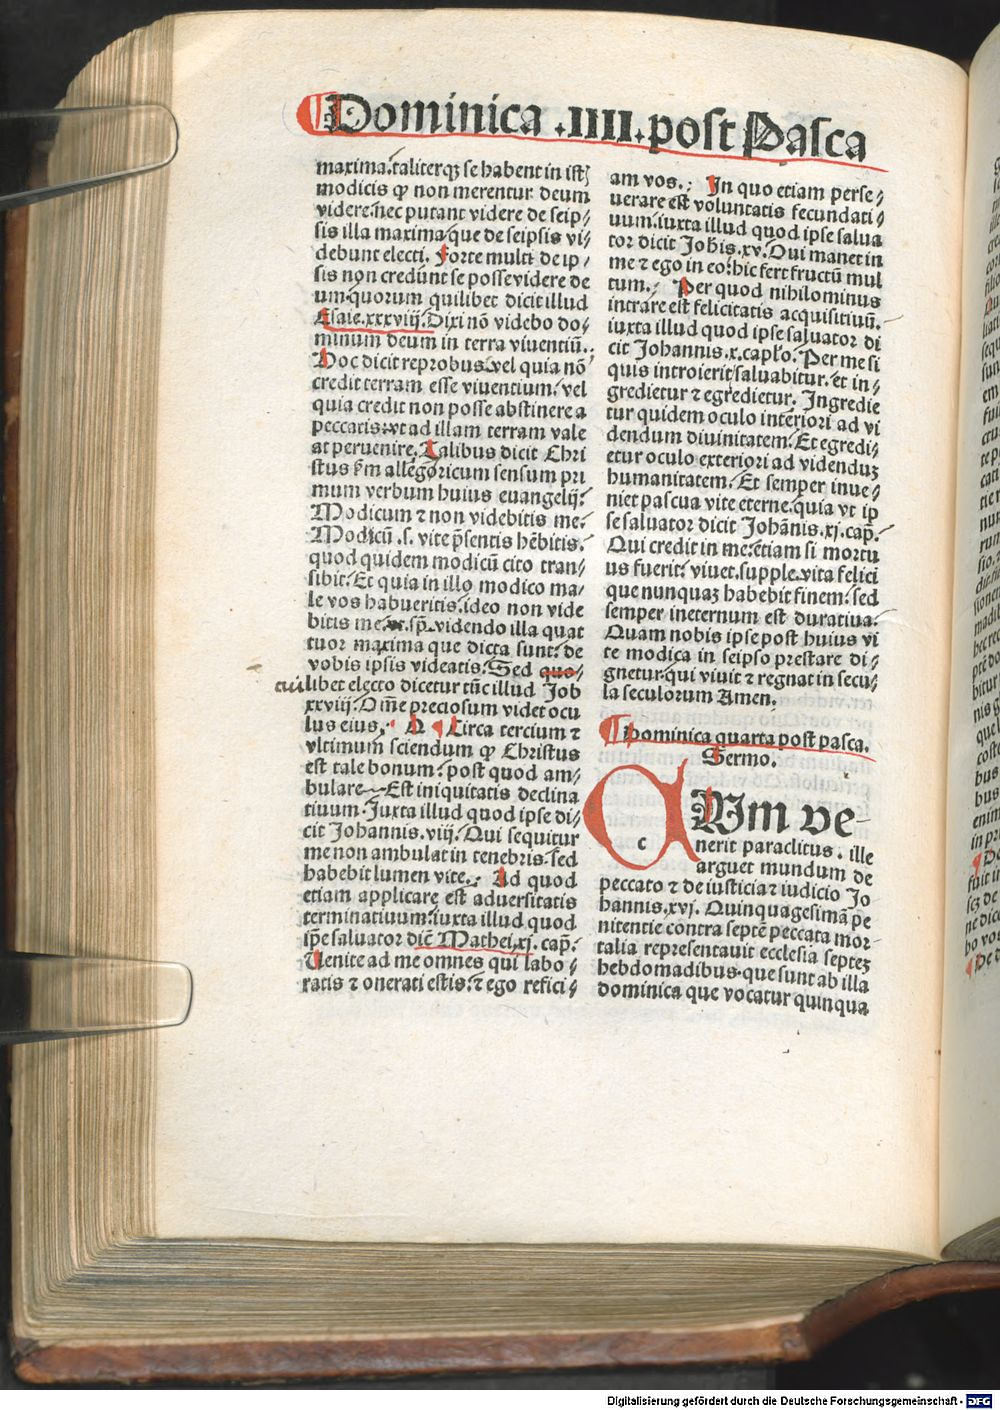 Dominica .IIII. post Pasca
maxima. taliterqꝫ se habent in istꝭ
modicis ꝙ non merentur deum
videre. nec putant videre de seip⸗
sis illa maxima que de seipsis vi⸗
debunt electi. Forte multi de ip⸗
sis non credūt se posse videre de
um. quorum quilibet dicit illud
Esaie.xxxviij. Dixi nō videbo do⸗
minum deum in terra viventiū.
Hoc dicit reprobus. vel quia nō
credit terram esse viventium. vel
quia credit non posse abstinere a
peccatis. vt ad illam terram vale
at pervenire. Talibus dicit Chri
stus ẜm allegoricum sensum pri
mum verbum huius euangelij.
Modicum ⁊ non videbitis me.
Modicū .s. vite p̄sentis hēbitis.
quod quidem modicū cito tran⸗
sibit. Et quia in illo modico ma⸗
le vos habueritis. ideo non vide
bitis me. sp̄. videndo illa quat
tuor maxima que dicta sunt. de
vobis ipsis videatis. Sed quo⸗
cuilibet electo dicetur tūc illud Job
xxviij. Om̄e preciosum videt ocu
lus eius. Circa tercium ⁊
vltimum sciendum ꝙ Christus
est tale bonum. post quod am⸗
bulare Est iniquitatis declina
tivum. Juxta illud quod ipse di⸗
cit Johannis.viij. Qui sequitur
me non ambulat in tenebris. sed
habebit lumen vite. Ad quod
etiam applicare est adversitatis
terminativum. iuxta illud quod
ip̄e salvator dic̄ Mathei.xj. cap̄.
Venite ad me omnes qui labo⸗
ratis ⁊ onerati estis. ⁊ ego refici⸗
am vos. In quo etiam perse⸗
verare est voluntatis fecundati⸗
vum. iuxta illud quod ipse salua
tor dicit Joh̄is.xv. Qui manet in
me ⁊ ego in eo. hic fert fructū mul
tum. Per quod nihilominus
intrare est felicitatis acquisitivū.
iuxta illud quod ipse saluator di
cit Johannis.x.capl̄o. Per me si
quis introierit saluabitur. et in⸗
gredietur ⁊ egredietur. Ingredie
tur quidem oculo interiori ad vi
dendum divinitatem. Et egredi⸗
etur oculo exteriori ad videnduꝫ
humanitatem. Et semper inue⸗
niet pascua vite eterne. quia vt ip
se saluator dicit Johānis.xj.cap̄.
Qui credit in me. etiam si mortu
us fuerit. vivet. supple. vita felici
que nunquaꝫ habebit finem. sed
semper ineternum est durativa.
Quam nobis ipse post huius vi
te modica in seipso prestare di⸗
gnetur. qui vivit ⁊ regnat in secu⸗
la seculorum Amen.
Dominica quarta post pasca.
Sermo.
c
Um ve⸗
nerit paraclitus. ille
arguet mundum de
peccato ⁊ de iusticia ⁊ iudicio Jo
hannis.xvj. Quinquagesimā pe
nitentie contra septē peccata mor⸗
talia representavit ecclesia septeꝫ
hebdomadibus. que sunt ab illa
dominica que vocatur quinqua
Digitalisierung gefördert durch die Deutsche Forschungsgemeinschaft - DFG